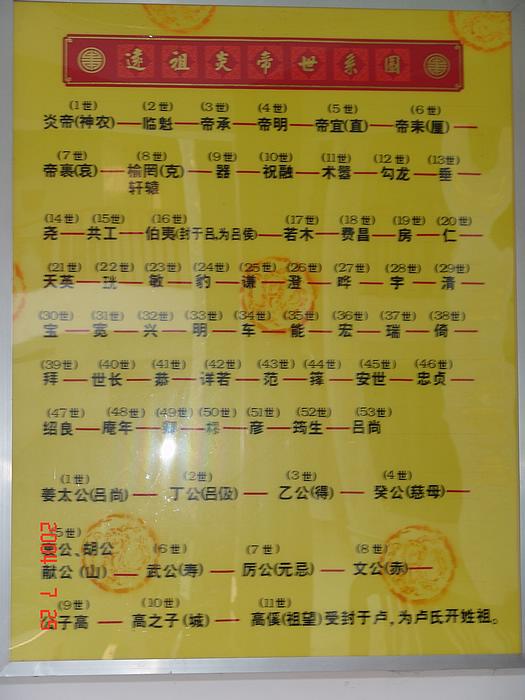 远祖炎帝世系图
(1世) (2世) (3世) (4世) (5世) (6世)
炎帝(神农)—临魁—帝承—帝明—帝宜(直)—帝来(厘)—
(7世) (8世) (9世) (10世) (11世) (12世) (13世)
帝裹(哀)—榆罔(克)—器—祝融—术嚣—勾龙—垂—
轩辕
(14世) (15世) (16世) (17世) (18世) (19世) (20世)
尧—共工—伯夷(封于吕,为吕侯)—若木—费昌—房—仁—
(21世) (22世) (23世) (24世) (25世) (26世) (27世) (28世) (29世)
天英—珖—敏—豹—谦—澄—晔—宇—清—
(30世) (31世) (32世) (33世) (34世) (35世) (36世) (37世) (38世)
宝—宽—兴—明—车—能—宏—瑞—倚—
(39世) (40世) (41世) (42世) (43世) (44世) (45世) (46世)
拜—世长—恭—详若—范—择—安世—忠贞—
(47世) (48世) (49世) (50世) (51世) (52世) (53世)
绍良—庵年—彦—筠生—吕尚
(1世) (2世) (3世) (4世)
姜太公(吕尚)—丁公(吕伋)—乙公(得)—癸公(慈母)—
5世)
公、胡公 (6世) (7世) (8世)
献公(山)—武公(寿)—厉公(无忌)—文公(赤)—
(9世) (10世) (11世)
公子高—高之子(城)—高傒(祖望)受封于卢,为卢氏开姓祖。
2004 7 25